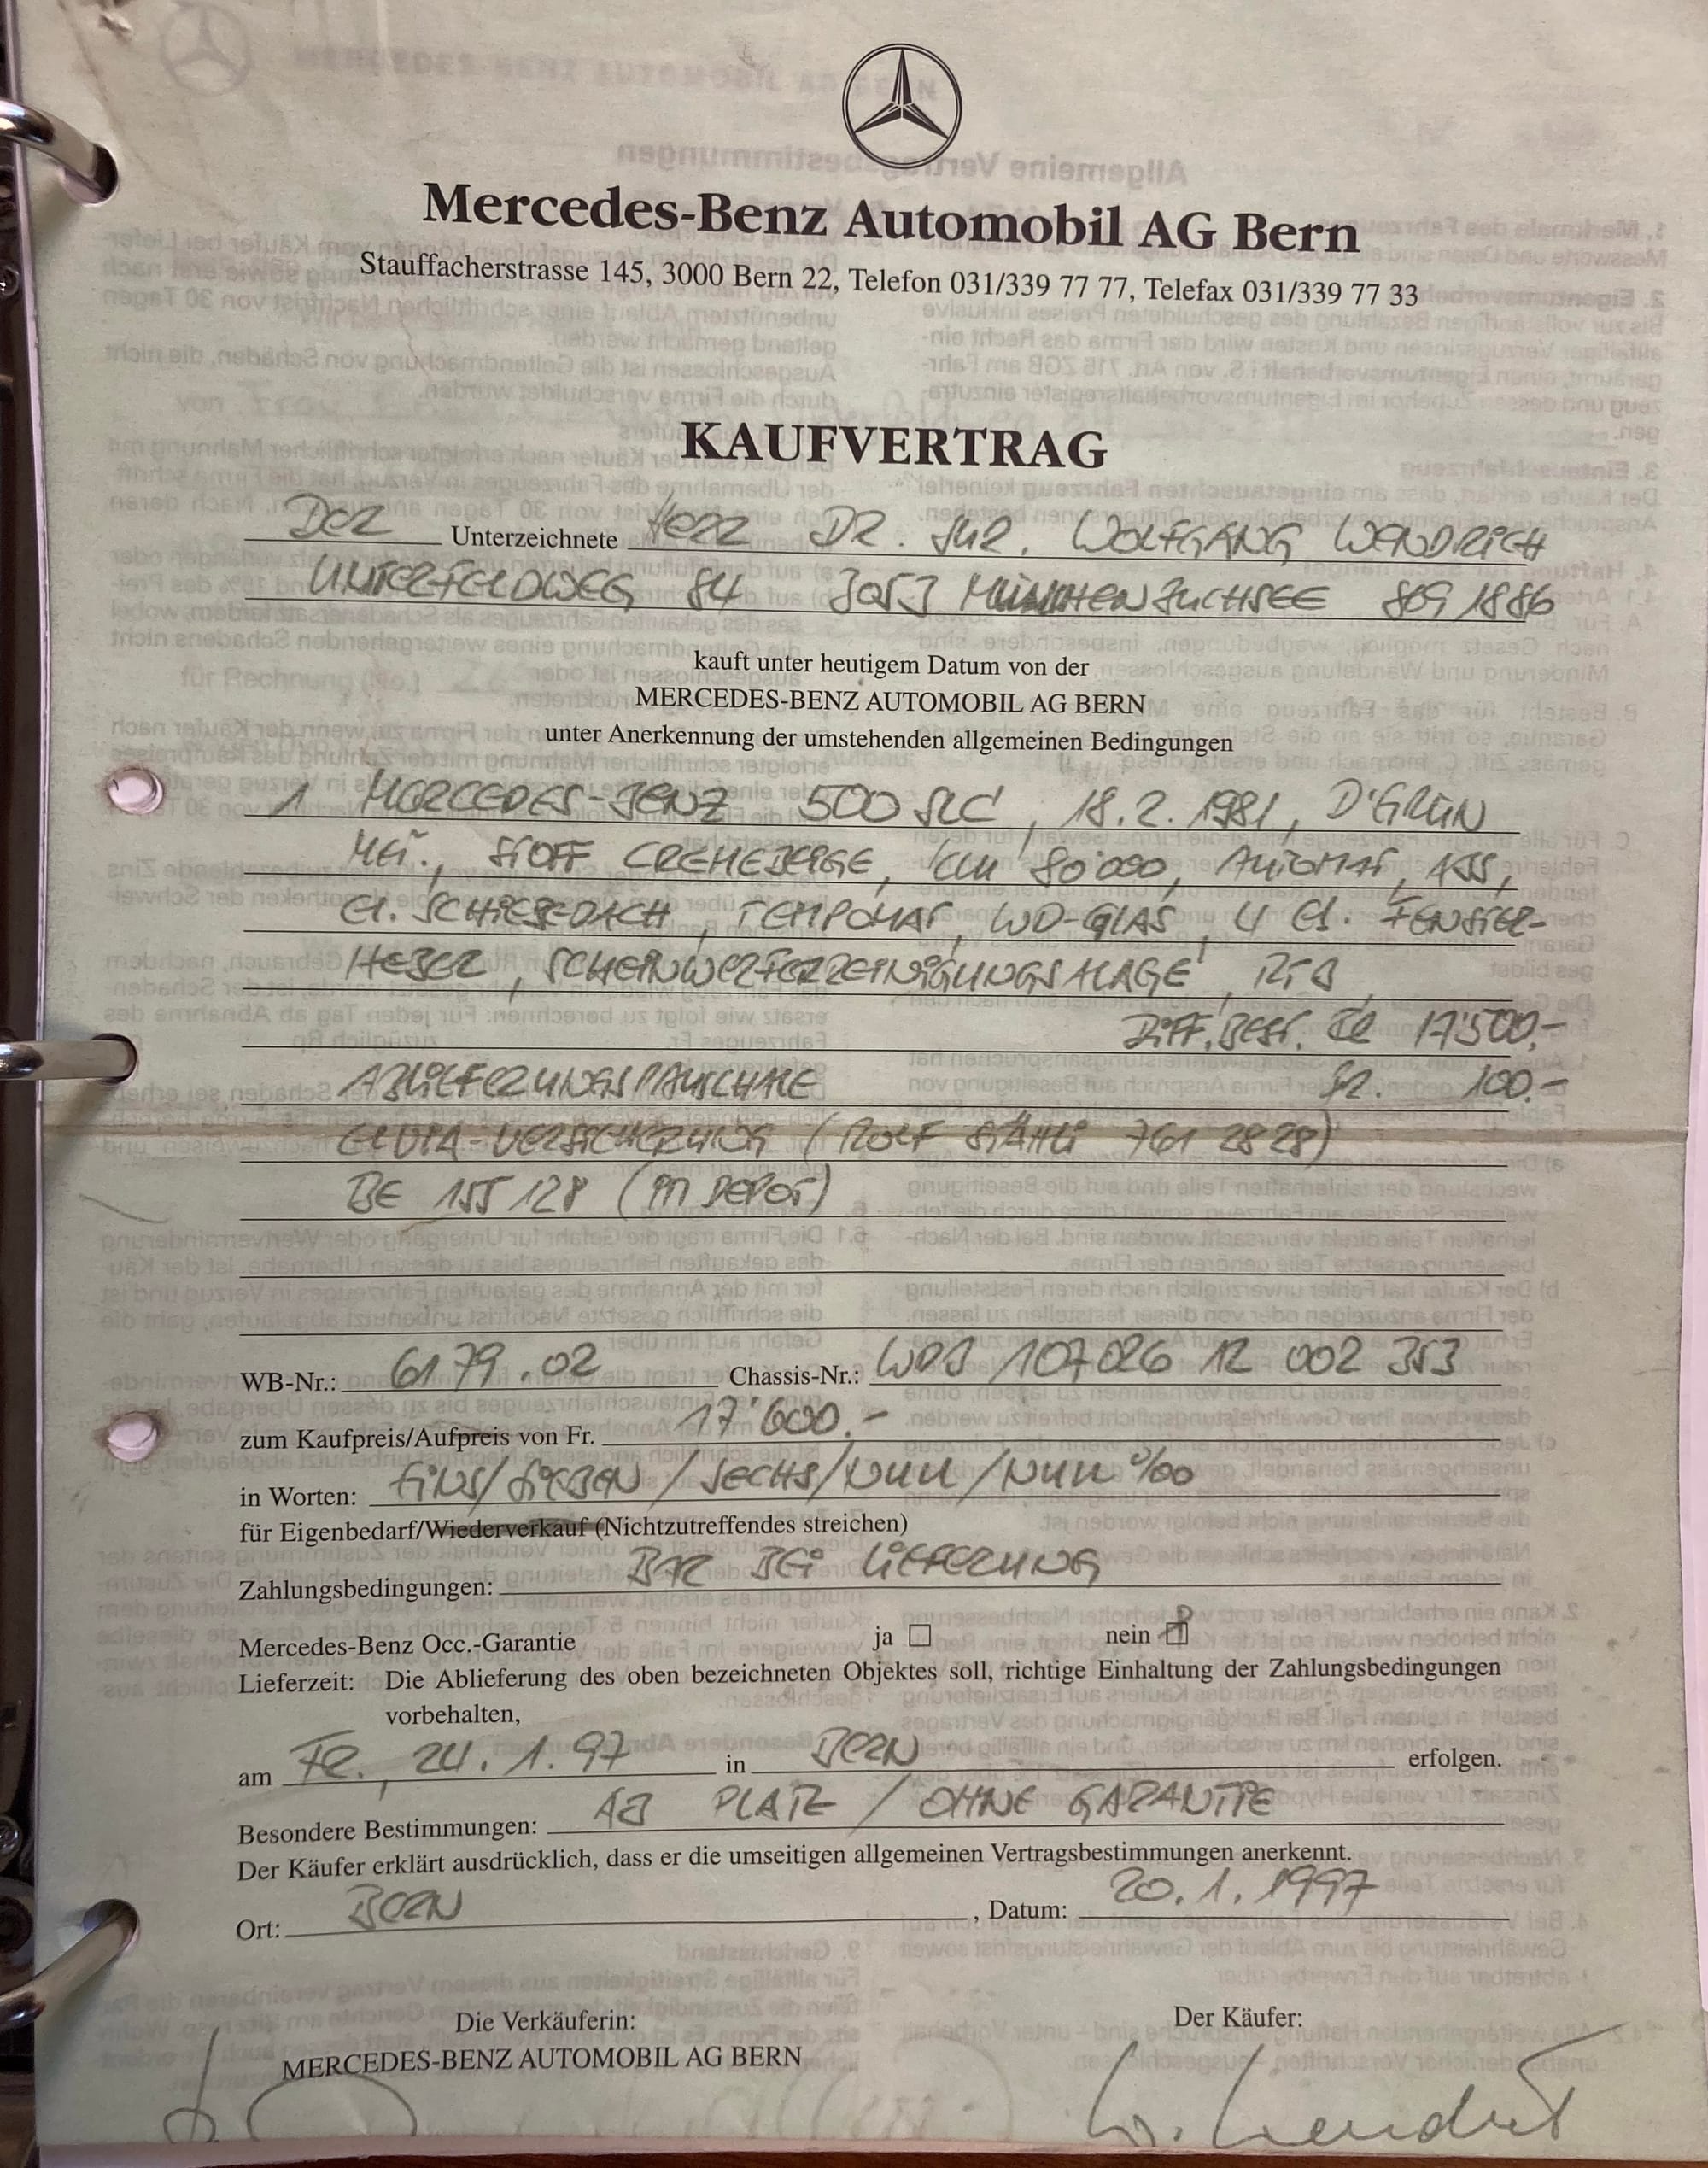 Mercedes-Benz Automobil AG Bern
Stauffacherstrasse 145, 3000 Bern 22, Telefon 031/339 77 77, Telefax 031/339 77 33
KAUFVERTRAG
Der Unterzeichnete Herr DR. JUR. WOLFGANG WENDRICH
UNTERFELDWEG 84 3053 MÜNCHENBUCHSEE 869 1886
kauft unter heutigem Datum von der
MERCEDES-BENZ AUTOMOBIL AG BERN
unter Anerkennung der umstehenden allgemeinen Bedingungen
1 MERCEDES-BENZ 500 SLC, 18.2.1981, D'GRÜN
MET., STOFF CREMEBEIGE, KM 80'000, AUTOMAT, ABS,
El. SCHIEBEDACH, TEMPOMAT, WD-GLAS, 4 El. FENSTER-
HEBER, SCHEINWERFERREINIGUNGSALAGE,
DIFF.BEST. 17'500.-
ABLIEFERUNGSPAUSCHALE Fr. 100.-
ELVIA-VERSICHERUNG (ROLF STÄHLI 761 28 28)
BE 155 128 (IN DEPOT)
WB-Nr.: 6179.02 Chassis-Nr.: WDB 107026 12 002 353
zum Kaufpreis/Aufpreis von Fr. 17'600.-
in Worten: EINS/SIEBEN/SECHS/NULL/NULL %00
für Eigenbedarf/Wiederverkauf (Nichtzutreffendes streichen)
Zahlungsbedingungen: BAR BEI LIEFERUNG
Mercedes-Benz Occ.-Garantie ja ☐ nein ☒
Lieferzeit: Die Ablieferung des oben bezeichneten Objektes soll, richtige Einhaltung der Zahlungsbedingungen
vorbehalten,
am FR., 24.1.97 in BERN erfolgen.
Besondere Bestimmungen: AB PLATZ / OHNE GARANTIE
Der Käufer erklärt ausdrücklich, dass er die umseitigen allgemeinen Vertragsbestimmungen anerkennt.
Ort: BERN, Datum: 20.1.1997
Die Verkäuferin: Der Käufer:
MERCEDES-BENZ AUTOMOBIL AG BERN